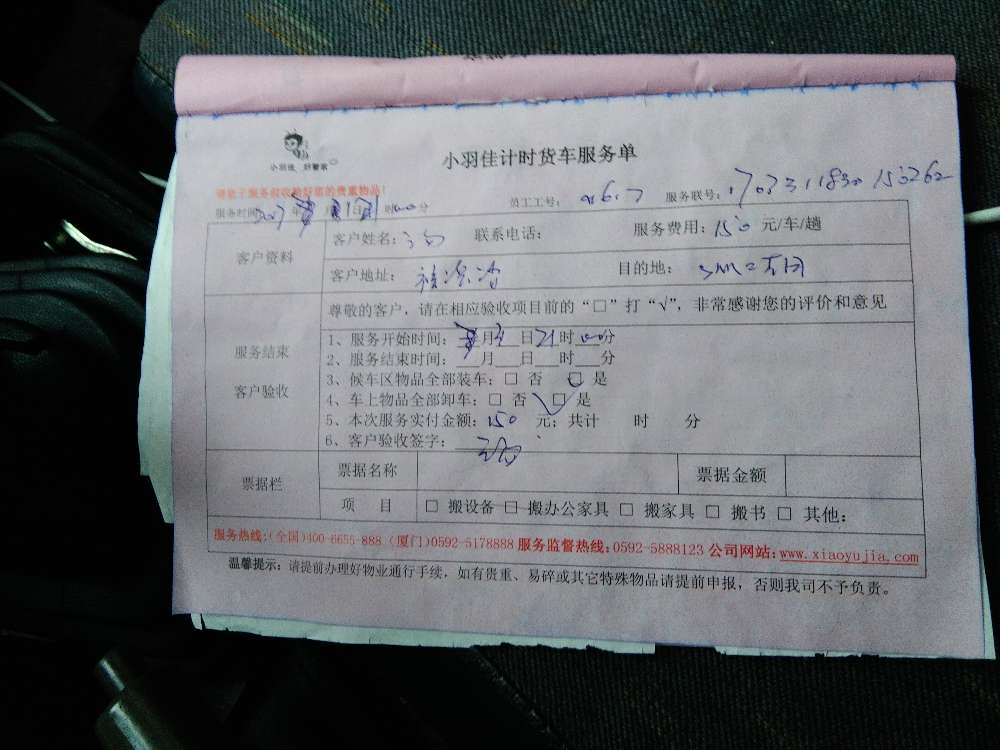 小羽佳 好管家
小羽佳计时货车服务单
服务时间: 2017年 月 日 时00分 员工工号: 服务联号:
客户资料
客户姓名: 联系电话: 服务费用: 150 元/车/趟
客户地址: 目的地:
服务结束
客户验收
尊敬的客户，请在相应验收项目前的“□”打“√”，非常感谢您的评价和意见
1、服务开始时间: 月 日21时00分
2、服务结束时间: 月 日 时 分
3、候车区物品全部装车: □ 否 □ 是
4、车上物品全部卸车: □ 否 □ 是
5、本次服务实付金额: 150 元；共计 时 分
6、客户验收签字:
票据栏
票据名称 票据金额
项 目 □ 搬设备 □ 搬办公家具 □ 搬家具 □ 搬书 □ 其他:
服务热线:(全国)400-6655-888 (厦门)0592-5178888 服务监督热线:0592-5888123 公司网站:www.xiaoyujia.com
温馨提示: 请提前办理好物业通行手续，如有贵重、易碎或其它特殊物品请提前申报，否则我司不予负责。